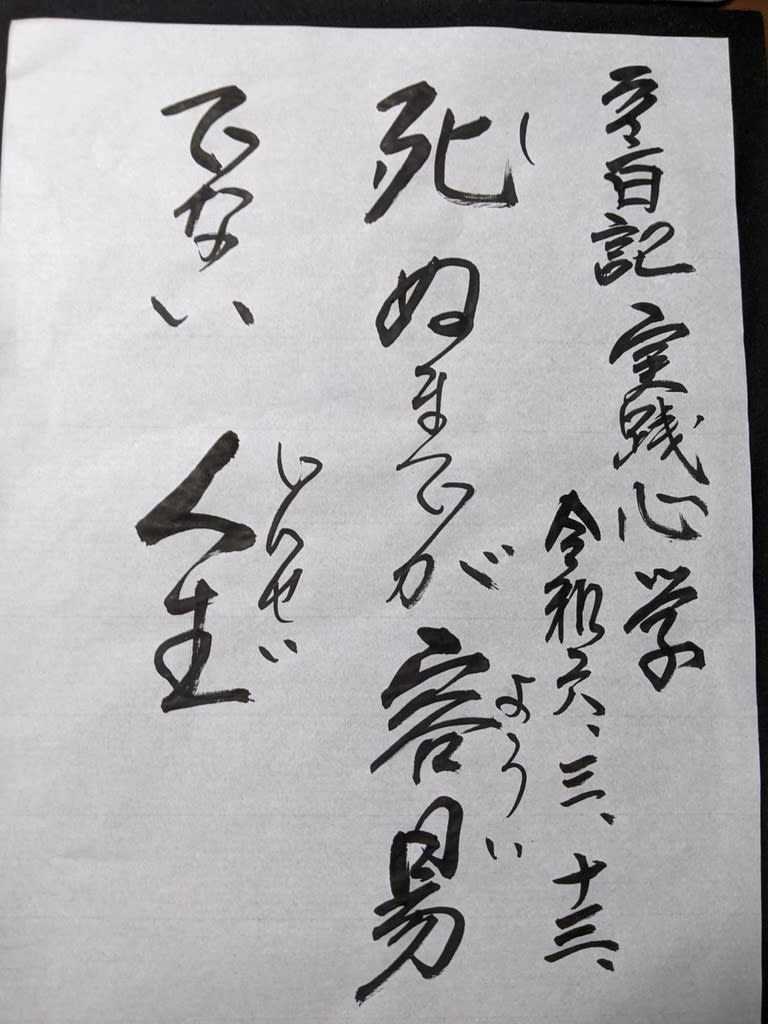 記 実践心学
令和六、三、十三、
死ぬまでが容易
し
ようい
でない 人生
じんせい